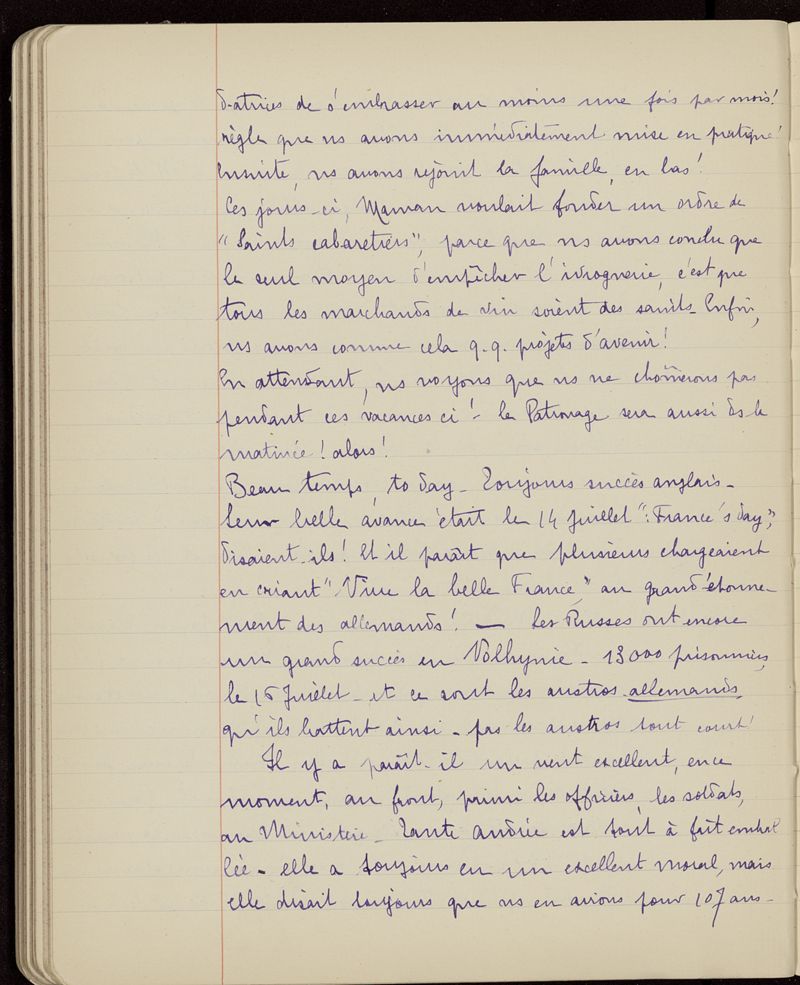 datrices de s'embrasser au moins une fois par mois!
règle que ns avons immédiatement mise en pratique!
Ensuite, ns avons rejoint la famille, en bas!
Ces jours-ci, Maman voulait fonder un ordre de
"Saints cabaretiers", parce que ns avons conclu que
le seul moyen d'empêcher l'ivrognerie, c'est que
tous les marchands de vin soient des saints. Enfin,
ns avons comme cela q.q. projets d'avenir!
En attendant, ns voyons que ns ne chômerons pas
pendant ces vacances ci! - le Patronage sera aussi ds la
matinée! alors!
Beau temps, to day - Toujours succès anglais -
leur belle avance était le 14 Juillet ": France's day",
disaient-ils! Et il paraît que plusieurs chargeaient
en criant "Vive la belle France," au grand étonne-
ment des allemands! — Les Russes ont encore
un grand succès en Volhynie - 13000 prisonniers,
le 16 Juillet - et ce sont les austros-allemands,
qu'ils battent ainsi - pas les austros tout court!
Il y a paraît-il un vent excellent, en ce
moment, au front, parmi les officiers, les soldats,
au Ministère - Tante Andrée est tout à fait embal
lée - elle a toujours eu un excellent moral, mais
elle disait toujours que ns en avions pour 107 ans -